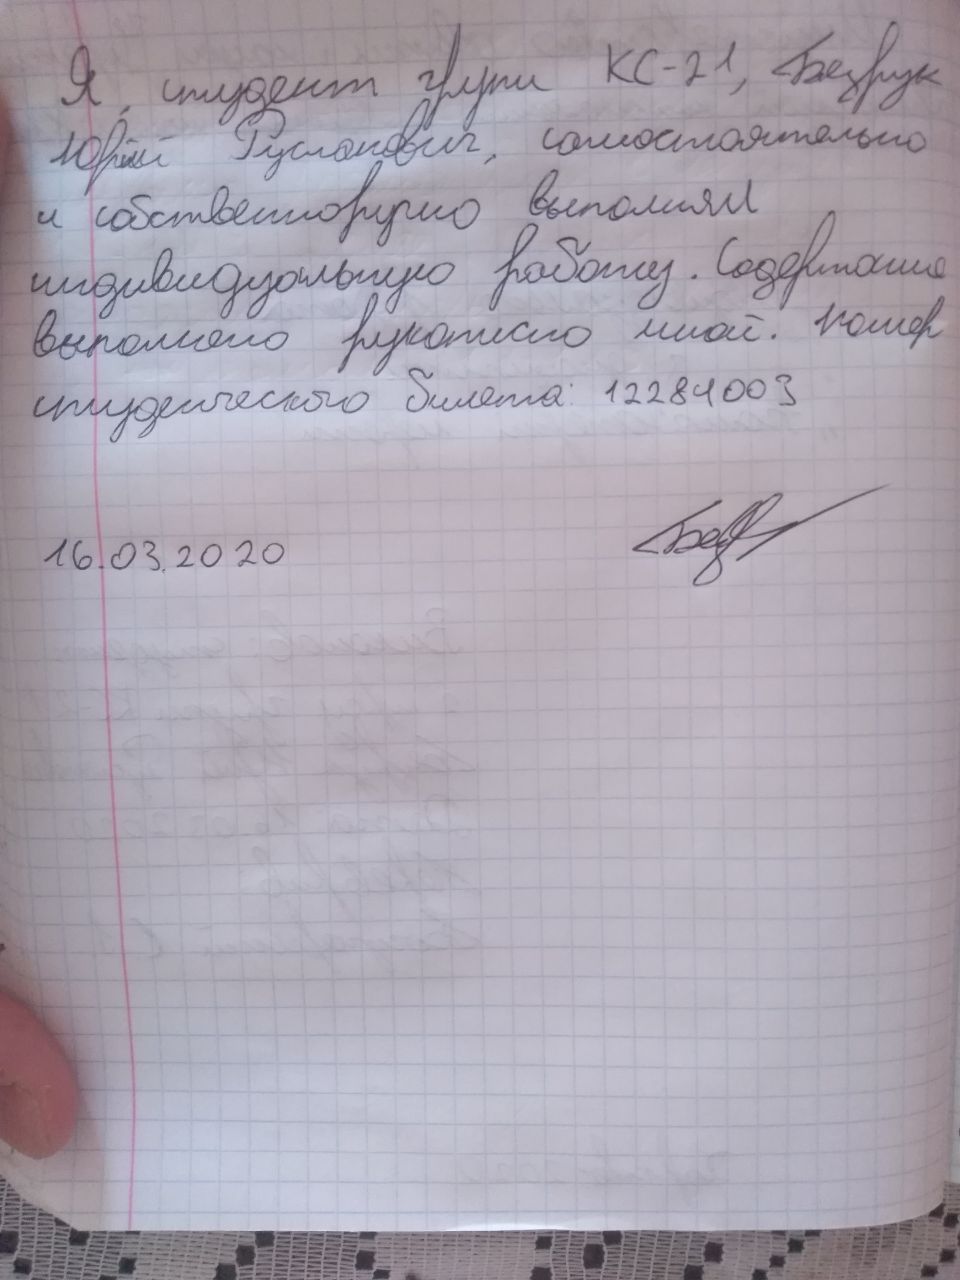 Я, студент групи КС-21, Безрук
Юрий Русланович, самостоятельно
и собственноручно выполнял
индивидуальную работу. Содержание
выполнено рукописно мной. Номер
студенческого билета: 12284003
16.03.2020